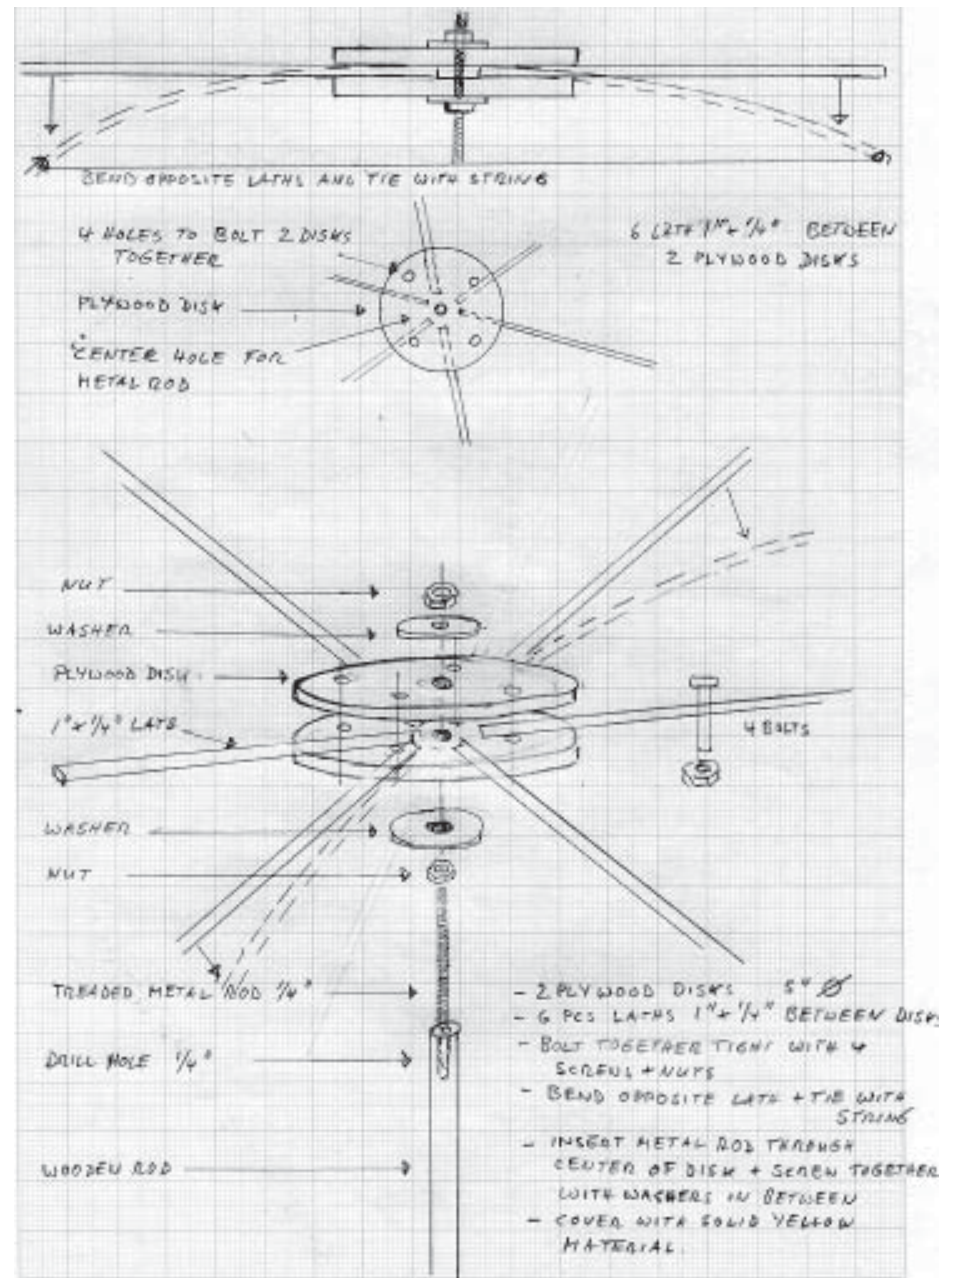 BEND OPPOSITE LATHS AND TIE WITH STRING
4 HOLES TO BOLT 2 DISKS
TOGETHER
PLYWOOD DISK
CENTER HOLE FOR
METAL ROD
6 LATH 1" x 1/4" BETWEEN
2 PLYWOOD DISKS
NUT
WASHER
PLYWOOD DISK
1" x 1/4" LATH
4 BOLTS
WASHER
NUT
TREADED METAL ROD 1/4"
DRILL HOLE 1/4"
WOODEN ROD
- 2 PLYWOOD DISKS 5" Ø
- 6 PCS LATHS 1" x 1/4" BETWEEN DISKS
- BOLT TOGETHER TIGHT WITH 4
SCREWS + NUTS
- BEND OPPOSITE LATH + TIE WITH
STRING
- INSERT METAL ROD THROUGH
CENTER OF DISK + SCREW TOGETHER
WITH WASHERS IN BETWEEN
- COVER WITH SOLID YELLOW
MATERIAL.